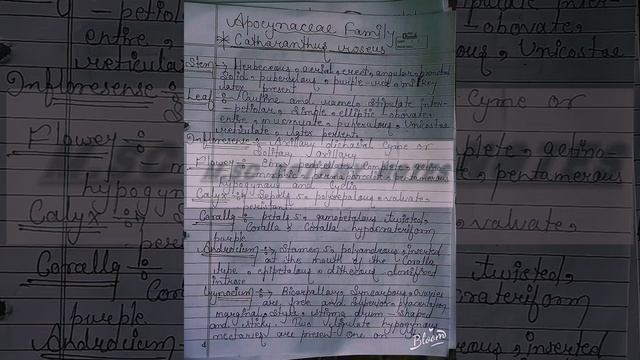 Apocynaceae Family
* Catharanthus roseus
Stem → Herbeceous, aerial, erect, angular, branched
Solid, puberulous, purple-red, milky
latex present
Leaf :- Cauline and ramel, Stipulate inter-
petiolar, Simple, elliptic - obovate,
entire, mucronate, puberulous, Unicostate
reticulate, latex persent.
Infloresense :- Axillary dichasial cyme or
Solitary axillary
Flower :- pedicellate, complete, actino-
morphic, hermaphrodite, pentamerous
hypogynous and Cyclic
Calyx :- Sepals 5, polysepalous, valvate,
persistent
Coralla :- petals 5, gamopetalous, twisted,
Coralla & Coralla hypocrateriform
purple
Androcium :- Stamen 5, polyandrous, inserted
at the mouth of the Coralla
tube, epipetalous, dithecous,
introse
Gynoecium :- Bicarpellary, Syncarpous, Ovaries
are free and Superior, placentation
marginal, Style, stigma drum - Shaped
and sticky. Two hypogynous
nectaries are present one on
Bloom